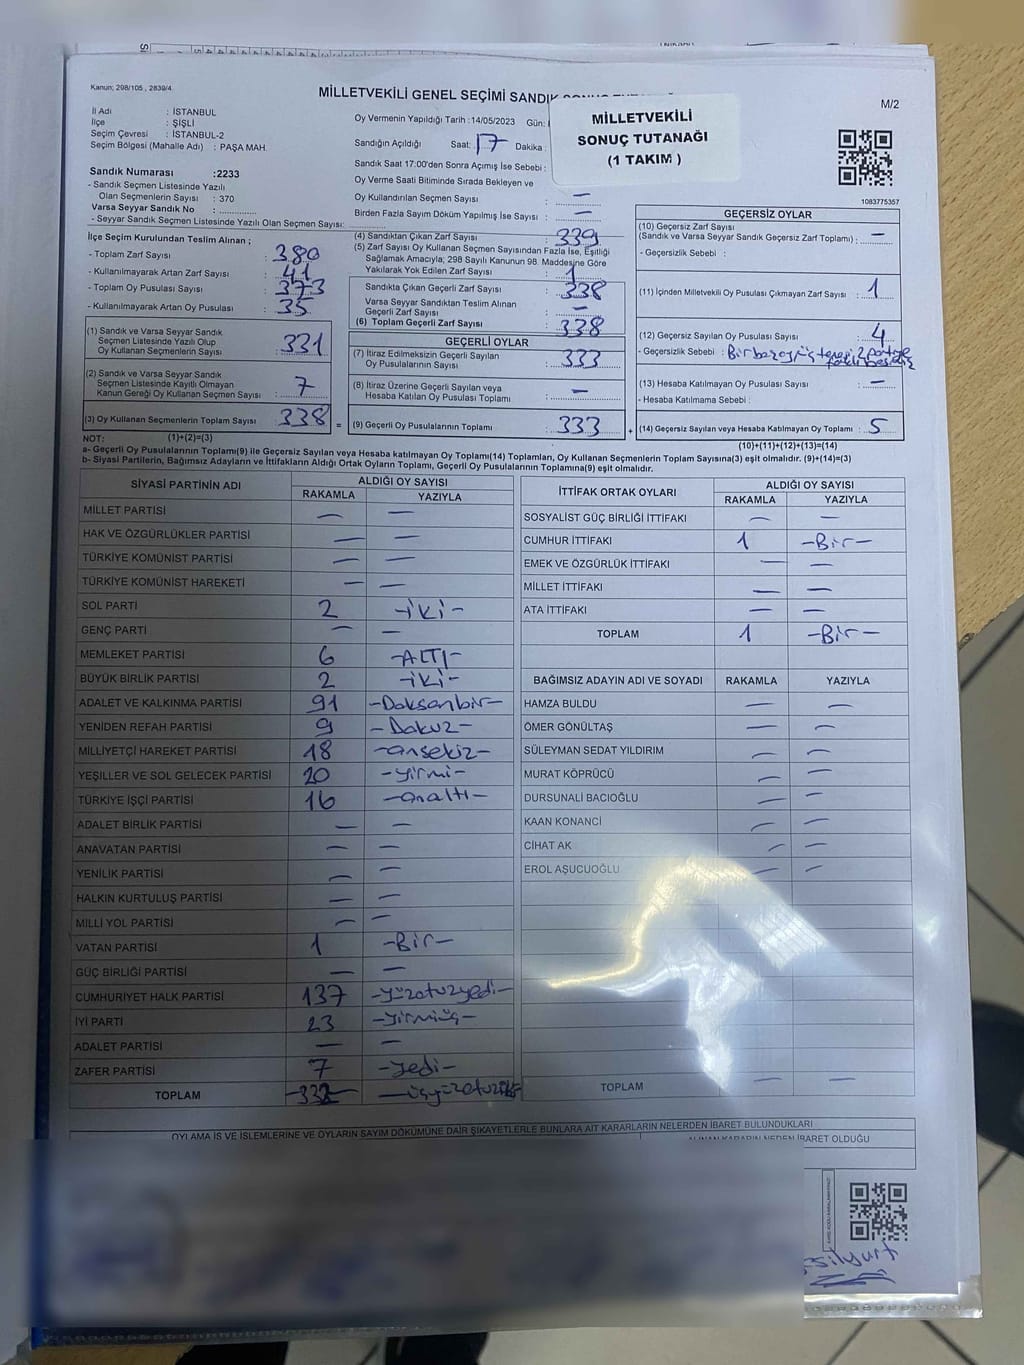 Kanun; 298/105 , 2839/4
MİLLETVEKİLİ GENEL SEÇİMİ SANDIK
M/2
İl Adı : İSTANBUL
İlçe : ŞİŞLİ
Seçim Çevresi : İSTANBUL-2
Seçim Bölgesi (Mahalle Adı) : PAŞA MAH.
Oy Vermenin Yapıldığı Tarih : 14/05/2023 Gün:
Sandığın Açıldığı Saat: 17 Dakika :
Sandık Saat 17:00'den Sonra Açımış İse Sebebi :
MİLLETVEKİLİ
SONUÇ TUTANAĞI
(1 TAKIM )
1083775357
Sandık Numarası :2233
- Sandık Seçmen Listesinde Yazılı
Olan Seçmenlerin Sayısı : 370
Varsa Seyyar Sandık No :
- Seyyar Sandık Seçmen Listesinde Yazılı Olan Seçmen Sayısı:
Oy Verme Saati Bitiminde Sırada Bekleyen ve
Oy Kullandırılan Seçmen Sayısı : —
Birden Fazla Sayım Döküm Yapılmış İse Sayısı : —
İlçe Seçim Kurulundan Teslim Alınan ;
- Toplam Zarf Sayısı : 380
- Kullanılmayarak Artan Zarf Sayısı : 41
- Toplam Oy Pusulası Sayısı : 373
- Kullanılmayarak Artan Oy Pusulası : 35
(1) Sandık ve Varsa Seyyar Sandık
Seçmen Listesinde Yazılı Olup
Oy Kullanan Seçmenlerin Sayısı : 331
(2) Sandık ve Varsa Seyyar Sandık
Seçmen Listesinde Kayıtlı Olmayan
Kanun Gereği Oy Kullanan Seçmen Sayısı : 7
(3) Oy Kullanan Seçmenlerin Toplam Sayısı : 338 =
(4) Sandıktan Çıkan Zarf Sayısı : 339
(5) Zarf Sayısı Oy Kullanan Seçmen Sayısından Fazla İse, Eşitliği
Sağlamak Amacıyla; 298 Sayılı Kanunun 98. Maddesine Göre
Yakılarak Yok Edilen Zarf Sayısı : 1
Sandıkta Çıkan Geçerli Zarf Sayısı : 338
Varsa Seyyar Sandıktan Teslim Alınan
Geçerli Zarf Sayısı : —
(6) Toplam Geçerli Zarf Sayısı : 338
GEÇERLİ OYLAR
(7) İtiraz Edilmeksizin Geçerli Sayılan
Oy Pusulalarının Sayısı : 333
(8) İtiraz Üzerine Geçerli Sayılan veya
Hesaba Katılan Oy Pusulası Toplamı : —
(9) Geçerli Oy Pusulalarının Toplamı : 333 +
GEÇERSİZ OYLAR
(10) Geçersiz Zarf Sayısı
(Sandık ve Varsa Seyyar Sandık Geçersiz Zarf Toplamı) : —
- Geçersizlik Sebebi :
(11) İçinden Milletvekili Oy Pusulası Çıkmayan Zarf Sayısı : 1
(12) Geçersiz Sayılan Oy Pusulası Sayısı : 4
- Geçersizlik Sebebi :
(13) Hesaba Katılmayan Oy Pusulası Sayısı : —
- Hesaba Katılmama Sebebi :
(14) Geçersiz Sayılan veya Hesaba Katılmayan Oy Toplamı : 5
NOT: (1)+(2)=(3)
(10)+(11)+(12)+(13)=(14)
a- Geçerli Oy Pusulalarının Toplamı(9) ile Geçersiz Sayılan veya Hesaba Katılmayan Oy Toplamı(14) Toplamları, Oy Kullanan Seçmenlerin Toplam Sayısına(3) eşit olmalıdır. (9)+(14)=(3)
b- Siyasi Partilerin, Bağımsız Adayların ve İttifakların Aldığı Ortak Oyların Toplamı, Geçerli Oy Pusulalarının Toplamına(9) eşit olmalıdır.
SİYASİ PARTİNİN ADI ALDIĞI OY SAYISI
RAKAMLA YAZIYLA
MİLLET PARTİSİ — —
HAK VE ÖZGÜRLÜKLER PARTİSİ — —
TÜRKİYE KOMÜNİST PARTİSİ — —
TÜRKİYE KOMÜNİST HAREKETİ — —
SOL PARTİ 2 -iki-
GENÇ PARTİ — —
MEMLEKET PARTİSİ 6 -ALTI-
BÜYÜK BİRLİK PARTİSİ 2 -iki-
ADALET VE KALKINMA PARTİSİ 91 -Doksanbir-
YENİDEN REFAH PARTİSİ 9 -Dokuz-
MİLLİYETÇİ HAREKET PARTİSİ 18 -onsekiz-
YEŞİLLER VE SOL GELECEK PARTİSİ 20 -yirmi-
TÜRKİYE İŞÇİ PARTİSİ 16 -onaltı-
ADALET BİRLİK PARTİSİ — —
ANAVATAN PARTİSİ — —
YENİLİK PARTİSİ — —
HALKIN KURTULUŞ PARTİSİ — —
MİLLİ YOL PARTİSİ — —
VATAN PARTİSİ 1 -Bir-
GÜÇ BİRLİĞİ PARTİSİ — —
CUMHURİYET HALK PARTİSİ 137 -yüzotuzyedi-
İYİ PARTİ 23 -yirmiüç-
ADALET PARTİSİ — —
ZAFER PARTİSİ 7 -yedi-
TOPLAM -332-
İTTİFAK ORTAK OYLARI ALDIĞI OY SAYISI
RAKAMLA YAZIYLA
SOSYALİST GÜÇ BİRLİĞİ İTTİFAKI — —
CUMHUR İTTİFAKI 1 -Bir-
EMEK VE ÖZGÜRLÜK İTTİFAKI — —
MİLLET İTTİFAKI — —
ATA İTTİFAKI — —
TOPLAM 1 -Bir-
BAĞIMSIZ ADAYIN ADI VE SOYADI RAKAMLA YAZIYLA
HAMZA BULDU — —
ÖMER GÖNÜLTAŞ — —
SÜLEYMAN SEDAT YILDIRIM — —
MURAT KÖPRÜCÜ — —
DURSUNALİ BACIOĞLU — —
KAAN KONANCİ — —
CİHAT AK — —
EROL AŞUCUOĞLU — —
TOPLAM — —
OYLAMA İŞ VE İŞLEMLERİNE VE OYLARIN SAYIM DÖKÜMÜNE DAİR ŞİKAYETLERLE BUNLARA AİT KARARLARIN NELERDEN İBARET BULUNDUKLARI
ALINAN KARARIN NEDEN İBARET OLDUĞU